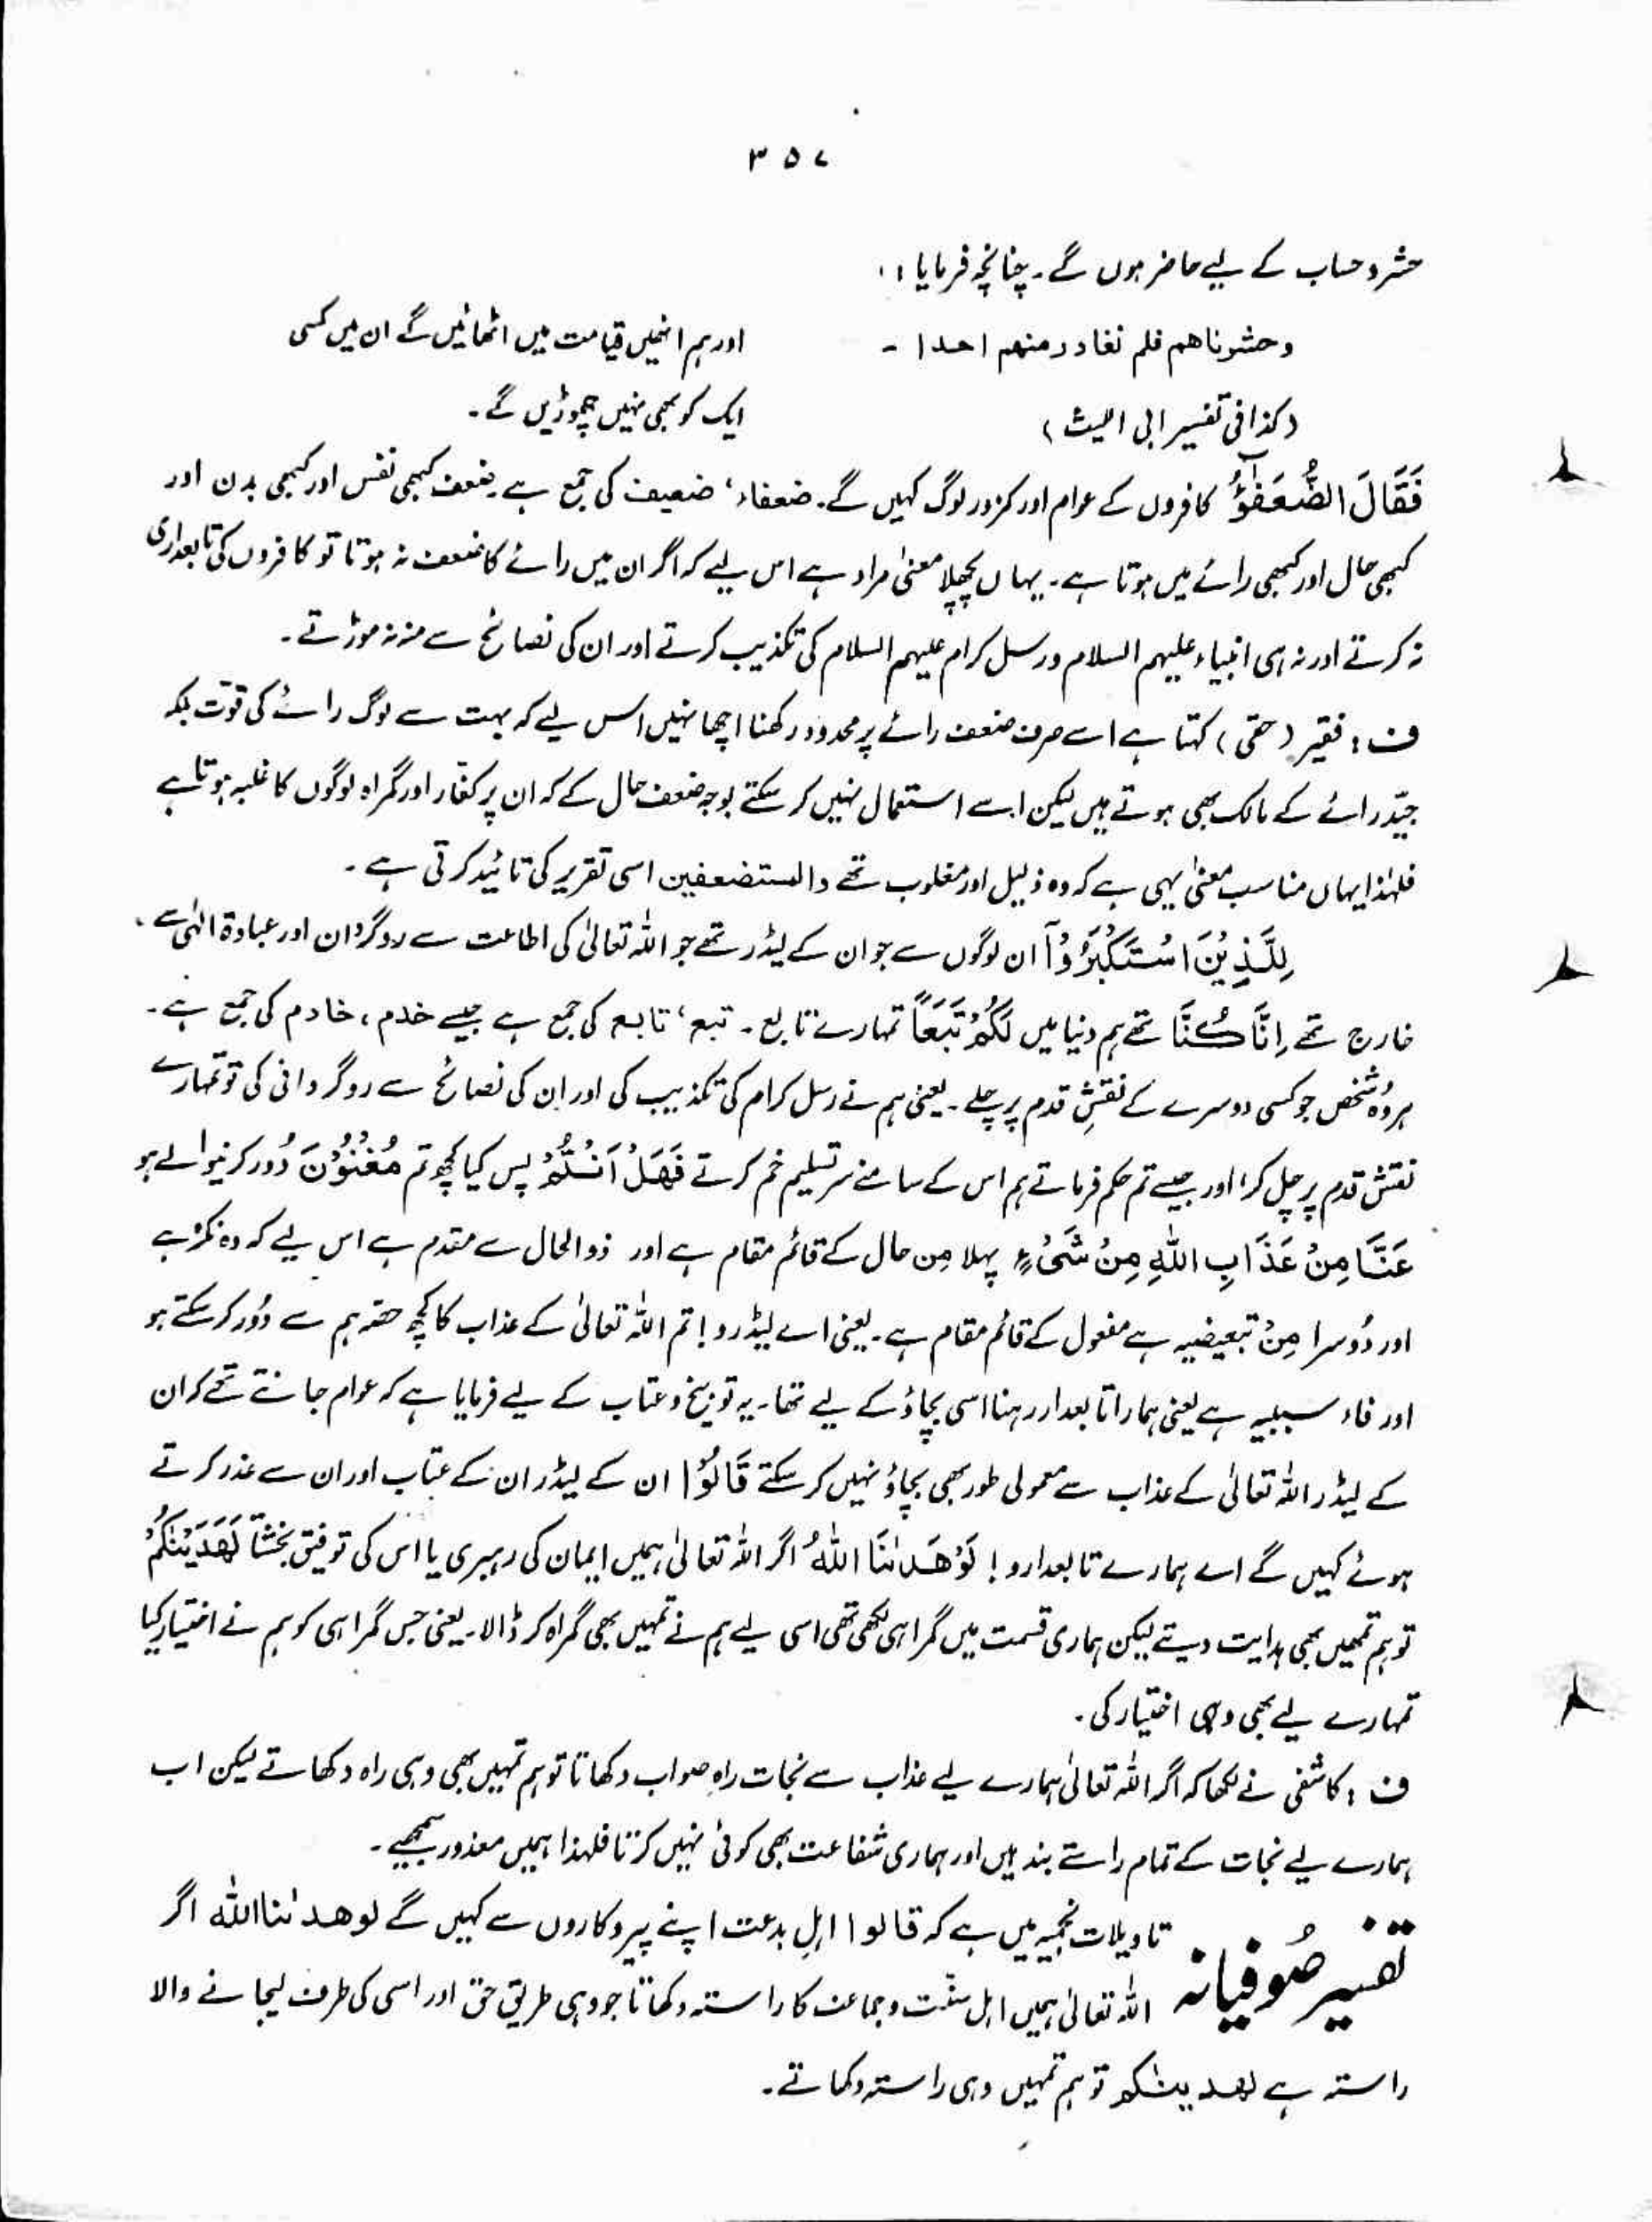 ۳۵۷
حشر و حساب کے لیے حاضر ہوں گے۔ چنانچہ فرمایا :
وحشرناهم فلم نغادر منهم احدا ۔
اور ہم انھیں قیامت میں اٹھائیں گے ان میں کسی
(کذا فی تفسیر ابی اللیث)
ایک کو بھی نہیں چھوڑیں گے۔
فَقَالَ الضُّعَفٰٓؤُا کافروں کے عوام اور کمزور لوگ کہیں گے۔ ضعفاء، ضعیف کی جمع ہے۔ ضعف کبھی نفس اور کبھی بدن اور
کبھی حال اور کبھی رائے میں ہوتا ہے۔ یہاں پچھلا معنیٰ مراد ہے اس لیے کہ اگر ان میں رائے کا ضعف نہ ہوتا تو کافروں کی تابعداری
نہ کرتے اور نہ ہی انبیاء علیہم السلام و رسل کرام علیہم السلام کی تکذیب کرتے اور ان کی نصائح سے منہ نہ موڑتے۔
ف : فقیر (حقی) کہتا ہے اسے صرف ضعف رائے پر محدود رکھنا اچھا نہیں اس لیے کہ بہت سے لوگ رائے کی قوّت بلکہ
جیّد رائے کے مالک بھی ہوتے ہیں لیکن اسے استعمال نہیں کر سکتے بوجہ ضعف حال کے کہ ان پر کفّار اور گمراہ لوگوں کا غلبہ ہوتا ہے
فلہٰذا یہاں مناسب معنیٰ یہی ہے کہ وہ ذلیل اور مغلوب تھے والمستضعفین اسی تقریر کی تائید کرتی ہے۔
لِلَّذِیْنَ اسْتَکْبَرُوْٓا ان لوگوں سے جو ان کے لیڈر تھے جو اللہ تعالیٰ کی اطاعت سے روگردان اور عبادۃ الٰہی سے
خارج تھے اِنَّا کُنَّا تھے ہم دنیا میں لَکُمْ تَبَعًا تمہارے تابع۔ تبع، تابع کی جمع ہے جیسے خدم، خادم کی جمع ہے۔
ہر وہ شخص جو کسی دوسرے کے نقشِ قدم پر چلے۔ یعنی ہم نے رسل کرام کی تکذیب کی اور ان کی نصائح سے روگردانی کی تو تمہارے
نقش قدم پر چل کر اور جیسے تم حکم فرماتے ہم اس کے سامنے سر تسلیم خم کرتے فَهَلْ اَنْتُمْ پس کیا کچھ تم مُغْنُوْنَ دُور کرنیوالے ہو
عَنَّا مِنْ عَذَابِ اللّٰهِ مِنْ شَیْءٍ پہلا مِن حال کے قائم مقام ہے اور ذوالحال سے مقدم ہے اس لیے کہ وہ نکرہ ہے
اور دُوسرا مِنْ تبعیضیہ ہے مفعول کے قائم مقام ہے۔ یعنی اے لیڈرو! تم اللہ تعالیٰ کے عذاب کا کچھ حصہ ہم سے دُور کر سکتے ہو
اور فاء سببیہ ہے یعنی ہمارا تابعدار رہنا اسی بچاؤ کے لیے تھا۔ یہ توبیخ و عتاب کے لیے فرمایا ہے کہ عوام جانتے تھے کہ ان
کے لیڈر اللہ تعالیٰ کے عذاب سے معمولی طور بھی بچاؤ نہیں کر سکتے قَالُوْا ان کے لیڈر ان کے عتاب اور ان سے عذر کرتے
ہوئے کہیں گے اے ہمارے تابعدارو! لَوْ هَدٰىنَا اللّٰهُ اگر اللہ تعالیٰ ہمیں ایمان کی رہبری یا اس کی توفیق بخشتا لَهَدَیْنٰکُمْ
تو ہم تمہیں بھی ہدایت دیتے لیکن ہماری قسمت میں گمراہی لکھی تھی اسی لیے ہم نے تمہیں بھی گمراہ کر ڈالا۔ یعنی جس گمراہی کو ہم نے اختیار کیا
تمہارے لیے بھی وہی اختیار کی۔
ف : کاشفی نے لکھا کہ اگر اللہ تعالیٰ ہمارے لیے عذاب سے نجات راہِ صواب دکھاتا تو ہم تمہیں بھی وہی راہ دکھاتے لیکن اب
ہمارے لیے نجات کے تمام راستے بند ہیں اور ہماری شفاعت بھی کوئی نہیں کرتا فلہذا ہمیں معذور سمجھیے۔
تفسیر صُوفیانہ تاویلات نجمیہ میں ہے کہ قالوا اہلِ بدعت اپنے پیروکاروں سے کہیں گے لوهدٰىنا اللّٰه اگر
اللہ تعالیٰ ہمیں اہل سنّت و جماعت کا راستہ دکھاتا جو وہی طریق حق اور اسی کی طرف لیجانے والا
راستہ ہے لهدینٰکم تو ہم تمہیں وہی راستہ دکھاتے۔